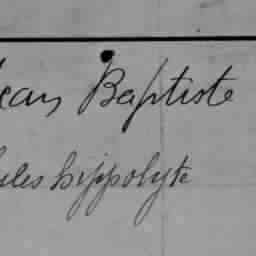 ean Baptiste
ules hippolyte